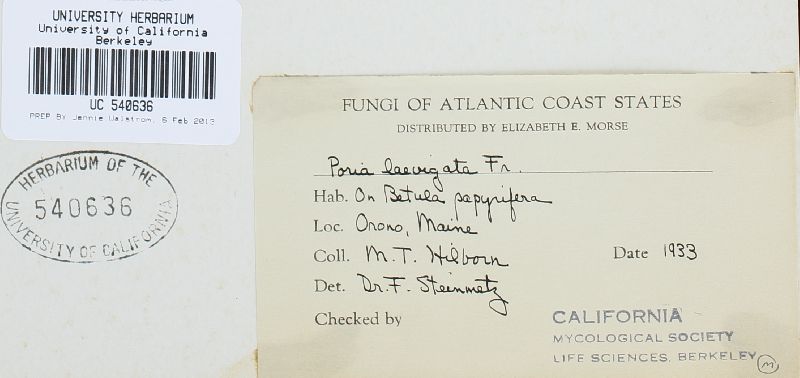 UNIVERSITY HERBARIUM
University of California
Berkeley
UC 540636
PREP BY Jennie Walstrom, 6 Feb 2013
HERBARIUM OF THE
540636
UNIVERSITY OF CALIFORNIA
FUNGI OF ATLANTIC COAST STATES
DISTRIBUTED BY ELIZABETH E. MORSE
Poria laevigata Fr.
Hab. On Betula papyrifera
Loc. Orono, Maine
Coll. M. T. Hilborn Date 1933
Det. Dr. F. Steinmetz
Checked by
CALIFORNIA
MYCOLOGICAL SOCIETY
LIFE SCIENCES, BERKELEY
M